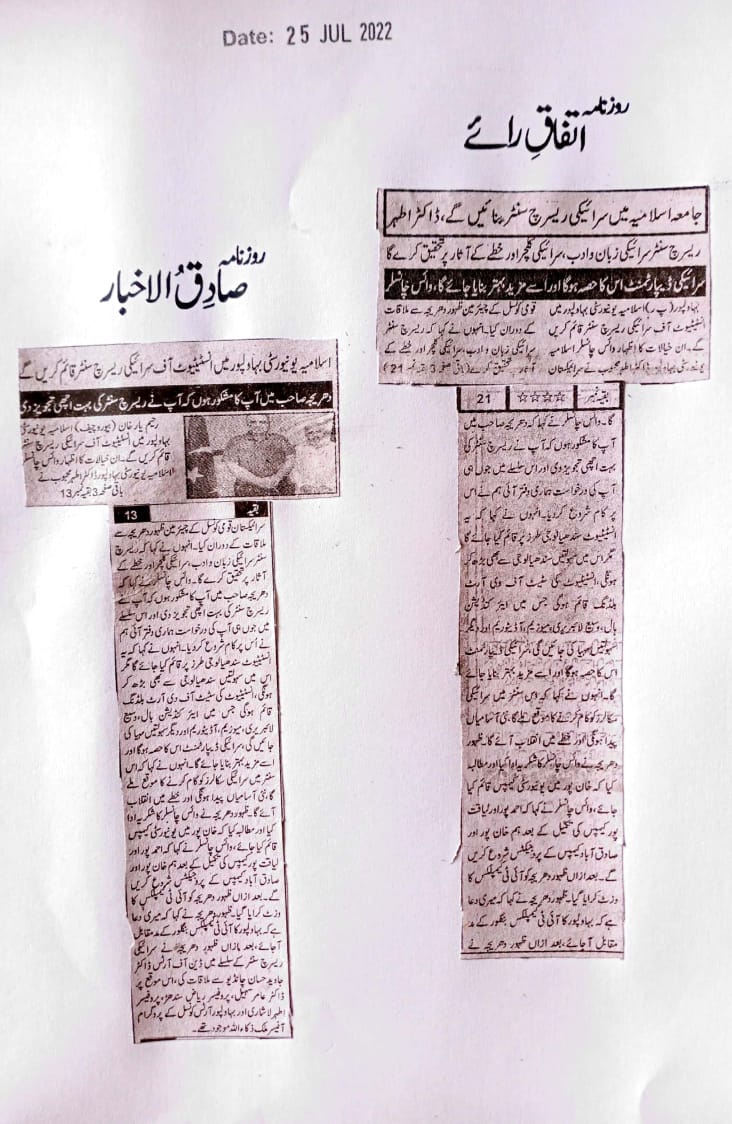 Date: 25 JUL 2022
روزنامہ
اتفاقِ رائے
جامعہ اسلامیہ میں سرائیکی ریسرچ سنٹر بنائیں گے، ڈاکٹر اطہر
ریسرچ سنٹر سرائیکی زبان و ادب، سرائیکی کلچر اور خطے کے آثار پر تحقیق کرے گا
سرائیکی ڈیپارٹمنٹ اس کا حصہ ہوگا اور اسے مزید بہتر بنایا جائے گا، وائس چانسلر
بہاولپور (پ ر) اسلامیہ یونیورسٹی بہاولپور میں
انسٹیٹیوٹ آف سرائیکی ریسرچ سنٹر قائم کریں
گے۔ ان خیالات کا اظہار وائس چانسلر اسلامیہ
یونیورسٹی بہاولپور ڈاکٹر اطہر محبوب نے سرائیکستان
قومی کونسل کے چیئرمین ظہور دھریجہ سے ملاقات
کے دوران کیا۔ انہوں نے کہا کہ ریسرچ سنٹر
سرائیکی زبان و ادب، سرائیکی کلچر اور خطے کے
آثار پر تحقیق کرے (باقی صفحہ 3 بقیہ نمبر 21)
بقیہ نمبر ☆☆☆☆ 21
گا۔ وائس چانسلر نے کہا کہ دھریجہ صاحب میں
آپ کا مشکور ہوں کہ آپ نے ریسرچ سنٹر کی
بہت اچھی تجویز دی اور اس سلسلے میں جوں ہی
آپ کی درخواست ہماری دفتر آئی ہم نے اس
پر کام شروع کردیا۔ انہوں نے کہا کہ یہ
انسٹیٹیوٹ سندھیالوجی طرز پر قائم کیا جائے گا
مگر اس میں سہولتیں سندھیالوجی سے بھی بڑھ کر
ہونگی، انسٹیٹیوٹ کی سٹیٹ آف دی آرٹ
بلڈنگ قائم ہوگی جس میں ایئر کنڈیشن
ہال، وسیع لائبریری، میوزیم، آڈیٹوریم اور دیگر
سہولتیں مہیا کی جائیں گی، سرائیکی ڈیپارٹمنٹ
اس کا حصہ ہوگا اور اسے مزید بہتر بنایا جائے
گا۔ انہوں نے کہا کہ اس سنٹر میں سرائیکی
سکالرز کو کام کرنے کا موقع ملے گا، نئی آسامیاں
پیدا ہونگی اور خطے میں انقلاب آئے گا۔ ظہور
دھریجہ نے وائس چانسلر کا شکریہ ادا کیا اور مطالبہ
کیا کہ خان پور میں یونیورسٹی کیمپس قائم کیا
جائے، وائس چانسلر نے کہا کہ احمد پور اور لیاقت
پور کیمپس کی تکمیل کے بعد ہم خان پور اور
صادق آباد کیمپس کے پروجیکٹس شروع کریں
گے۔ بعد ازاں ظہور دھریجہ کو آئی ٹی کمپلیکس کا
وزٹ کرایا گیا۔ ظہور دھریجہ نے کہا کہ میری دعا
ہے کہ بہاولپور کا آئی ٹی کمپلیکس بنگلور کے مد
مقابل آجائے، بعد ازاں ظہور دھریجہ نے
روزنامہ
صادِقُ الاخبار
اسلامیہ یونیورسٹی بہاولپور میں انسٹیٹیوٹ آف سرائیکی ریسرچ سنٹر قائم کریں گے
دھریجہ صاحب میں آپ کا مشکور ہوں کہ آپ نے ریسرچ سنٹر کی بہت اچھی تجویز دی
رحیم یار خان (بیورو چیف) اسلامیہ یونیورسٹی
بہاولپور میں انسٹیٹیوٹ آف سرائیکی ریسرچ سنٹر
قائم کریں گے۔ ان خیالات کا اظہار وائس چانسلر
اسلامیہ یونیورسٹی بہاولپور ڈاکٹر اطہر محبوب نے
باقی صفحہ 3 بقیہ نمبر 13
بقیہ 13
سرائیکستان قومی کونسل کے چیئرمین ظہور دھریجہ سے
ملاقات کے دوران کیا۔ انہوں نے کہا کہ ریسرچ
سنٹر سرائیکی زبان و ادب، سرائیکی کلچر اور خطے کے
آثار پر تحقیق کرے گا۔ وائس چانسلر نے کہا کہ
دھریجہ صاحب میں آپ کا مشکور ہوں کہ آپ نے
ریسرچ سنٹر کی بہت اچھی تجویز دی اور اس سلسلے
میں جوں ہی آپ کی درخواست ہماری دفتر آئی ہم
نے اُس پر کام شروع کردیا۔ انہوں نے کہا کہ یہ
انسٹیٹیوٹ سندھیالوجی طرز پر قائم کیا جائے گا مگر
اس میں سہولتیں سندھیالوجی سے بھی بڑھ کر
ہونگی، انسٹیٹیوٹ کی سٹیٹ آف دی آرٹ بلڈنگ
قائم ہوگی جس میں ایئر کنڈیشن ہال، وسیع
لائبریری، میوزیم، آڈیٹوریم اور دیگر سہولتیں مہیا کی
جائیں گی، سرائیکی ڈیپارٹمنٹ اس کا حصہ ہوگا اور
اسے مزید بہتر بنایا جائے گا۔ انہوں نے کہا کہ اس
سنٹر میں سرائیکی سکالرز کو کام کرنے کا موقع ملے
گا، نئی آسامیاں پیدا ہونگی اور خطے میں انقلاب
آئے گا۔ ظہور دھریجہ نے وائس چانسلر کا شکریہ ادا
کیا اور مطالبہ کیا کہ خان پور میں یونیورسٹی کیمپس
قائم کیا جائے، وائس چانسلر نے کہا کہ احمد پور اور
لیاقت پور کیمپس کی تکمیل کے بعد ہم خان پور اور
صادق آباد کیمپس کے پروجیکٹس شروع کریں
گے۔ بعد ازاں ظہور دھریجہ کو آئی ٹی کمپلیکس کا
وزٹ کرایا گیا۔ ظہور دھریجہ نے کہا کہ میری دعا
ہے کہ بہاولپور کا آئی ٹی کمپلیکس بنگلور کے مد مقابل
آجائے، بعد ازاں ظہور دھریجہ نے سرائیکی
ریسرچ سنٹر کے سلسلے میں ڈین آف آرٹس ڈاکٹر
جاوید حسان چانڈیو سے ملاقات کی، اس موقع پر
ڈاکٹر عامر سہیل، پروفیسر ریاض سندھڑ، پروفیسر
اطہر لاشاری اور بہاولپور آرٹس کونسل کے پروگرام
آفیسر ملک ذکاء اللہ موجود تھے۔